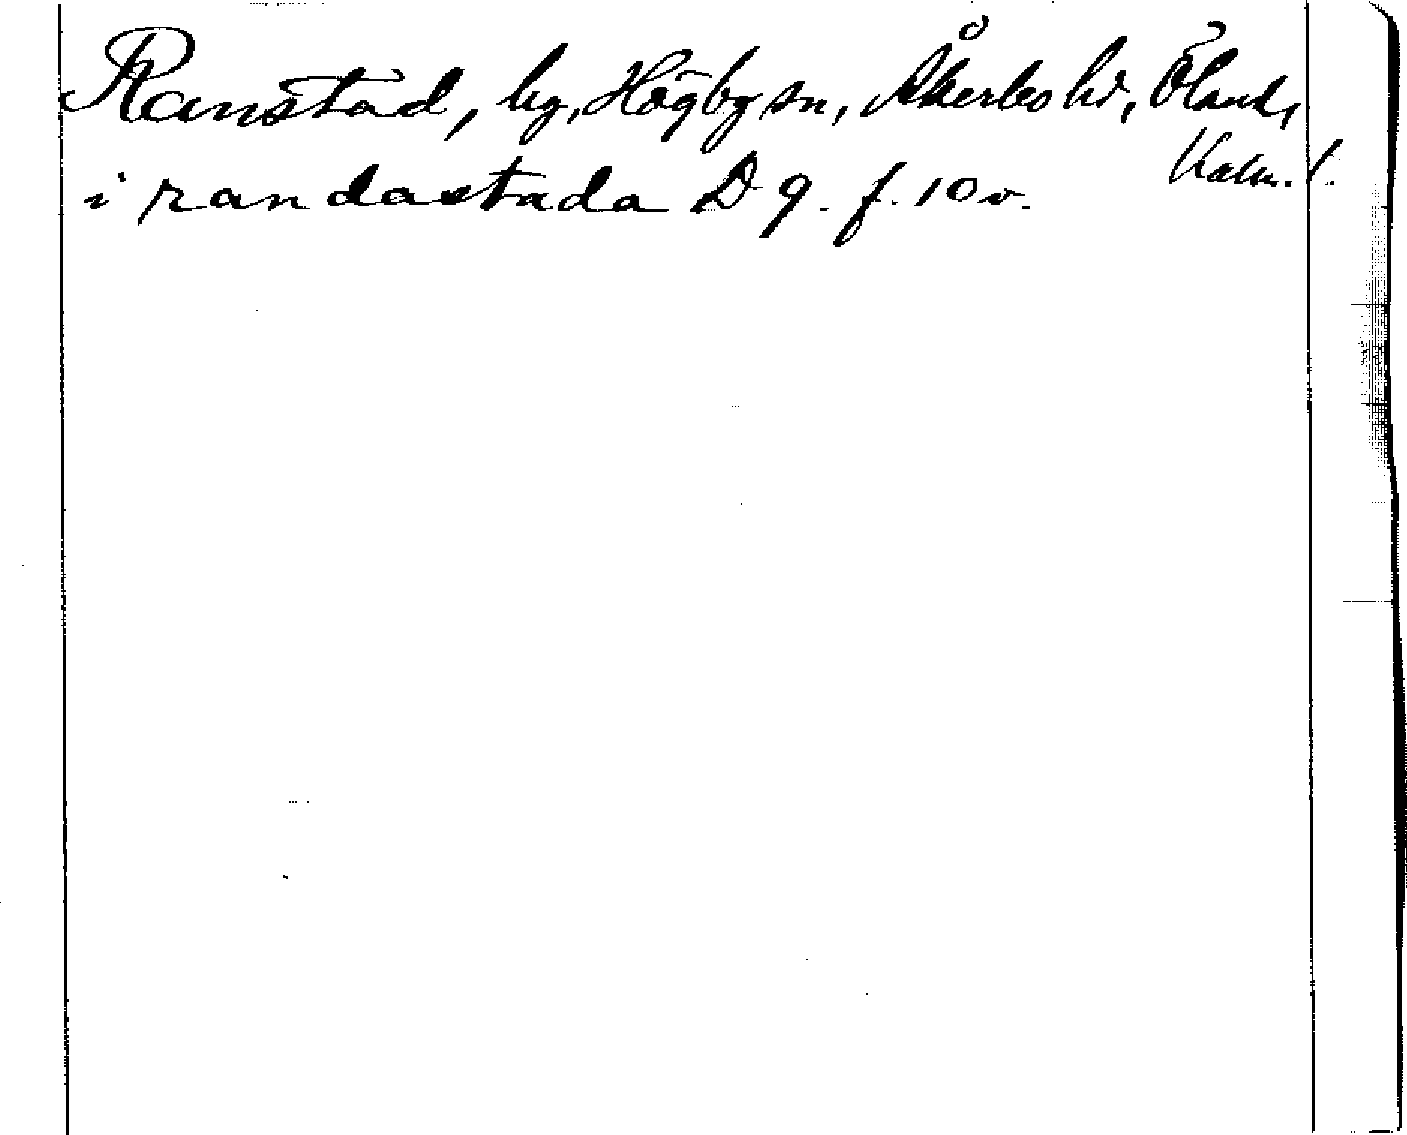 Ranstad, by, Högby sn, Åkerbo hd, Öland,
Kalm. l.
i randastada D 9. f. 10 v.